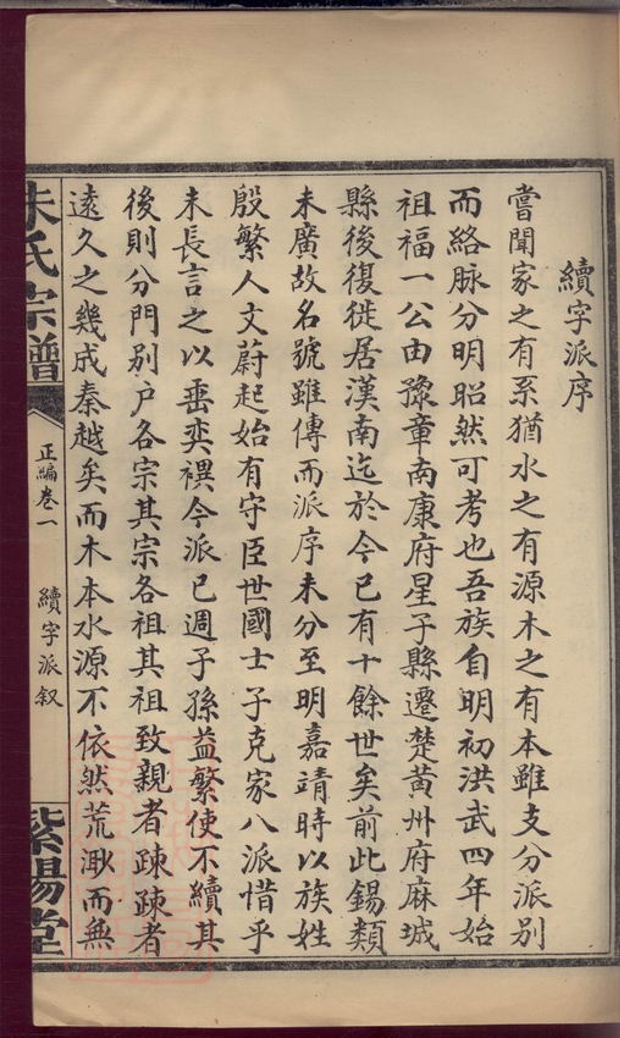 續字派序
嘗聞家之有系猶水之有源木之有本雖支分派別
而絡脉分明昭然可考也吾族自明初洪武四年始
祖福一公由豫章南康府星子縣遷楚黃州府麻城
縣後復徙居漢南迄於今已有十餘世矣前此錫類
未廣故名號雖傳而派序未分至明嘉靖時以族姓
殷繁人文蔚起始有守臣世國士子克家八派惜乎
未長言之以垂奕禩今派已週子孫益繁使不續其
後則分門別户各宗其宗各祖其祖致親者踈踈者
遠久之幾成秦越矣而木本水源不依然荒渺而無
朱氏宗譜
正編卷一
續字派叙
紫陽堂